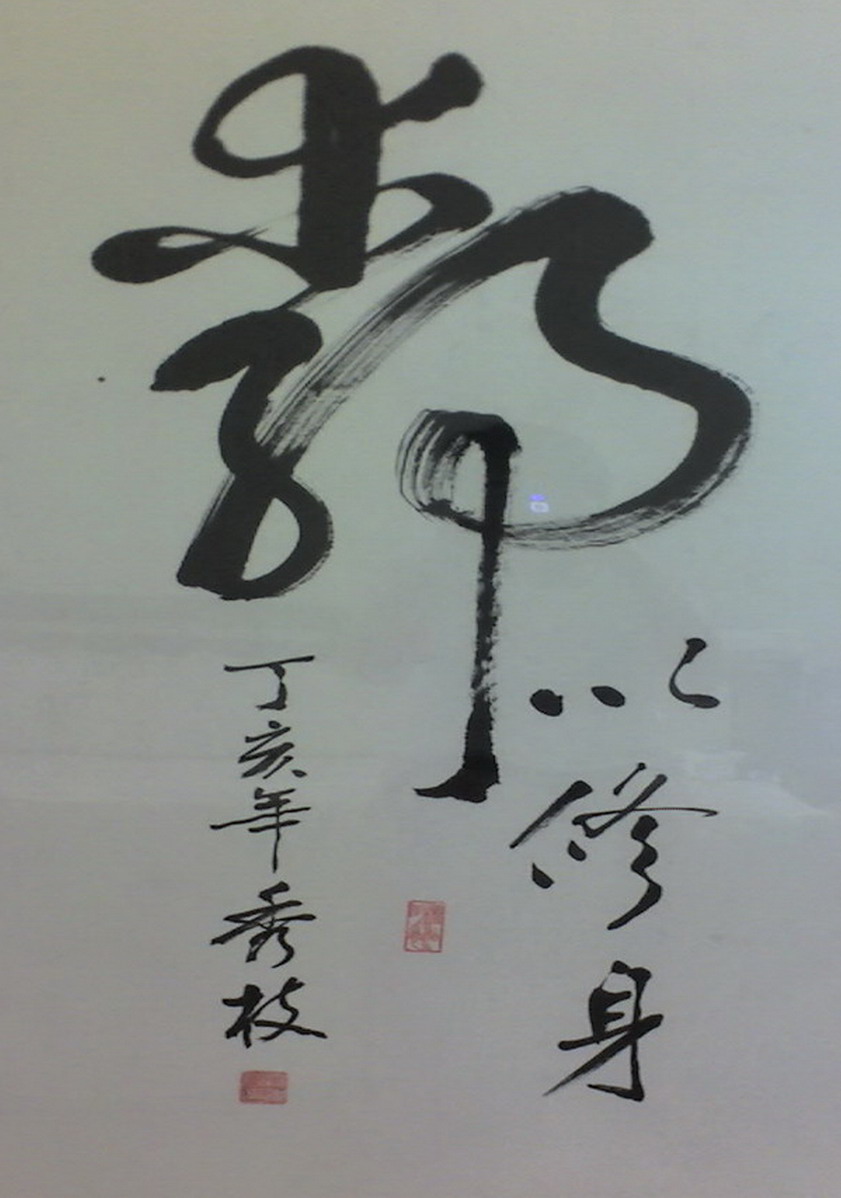 静
以修身
丁亥年秀枝